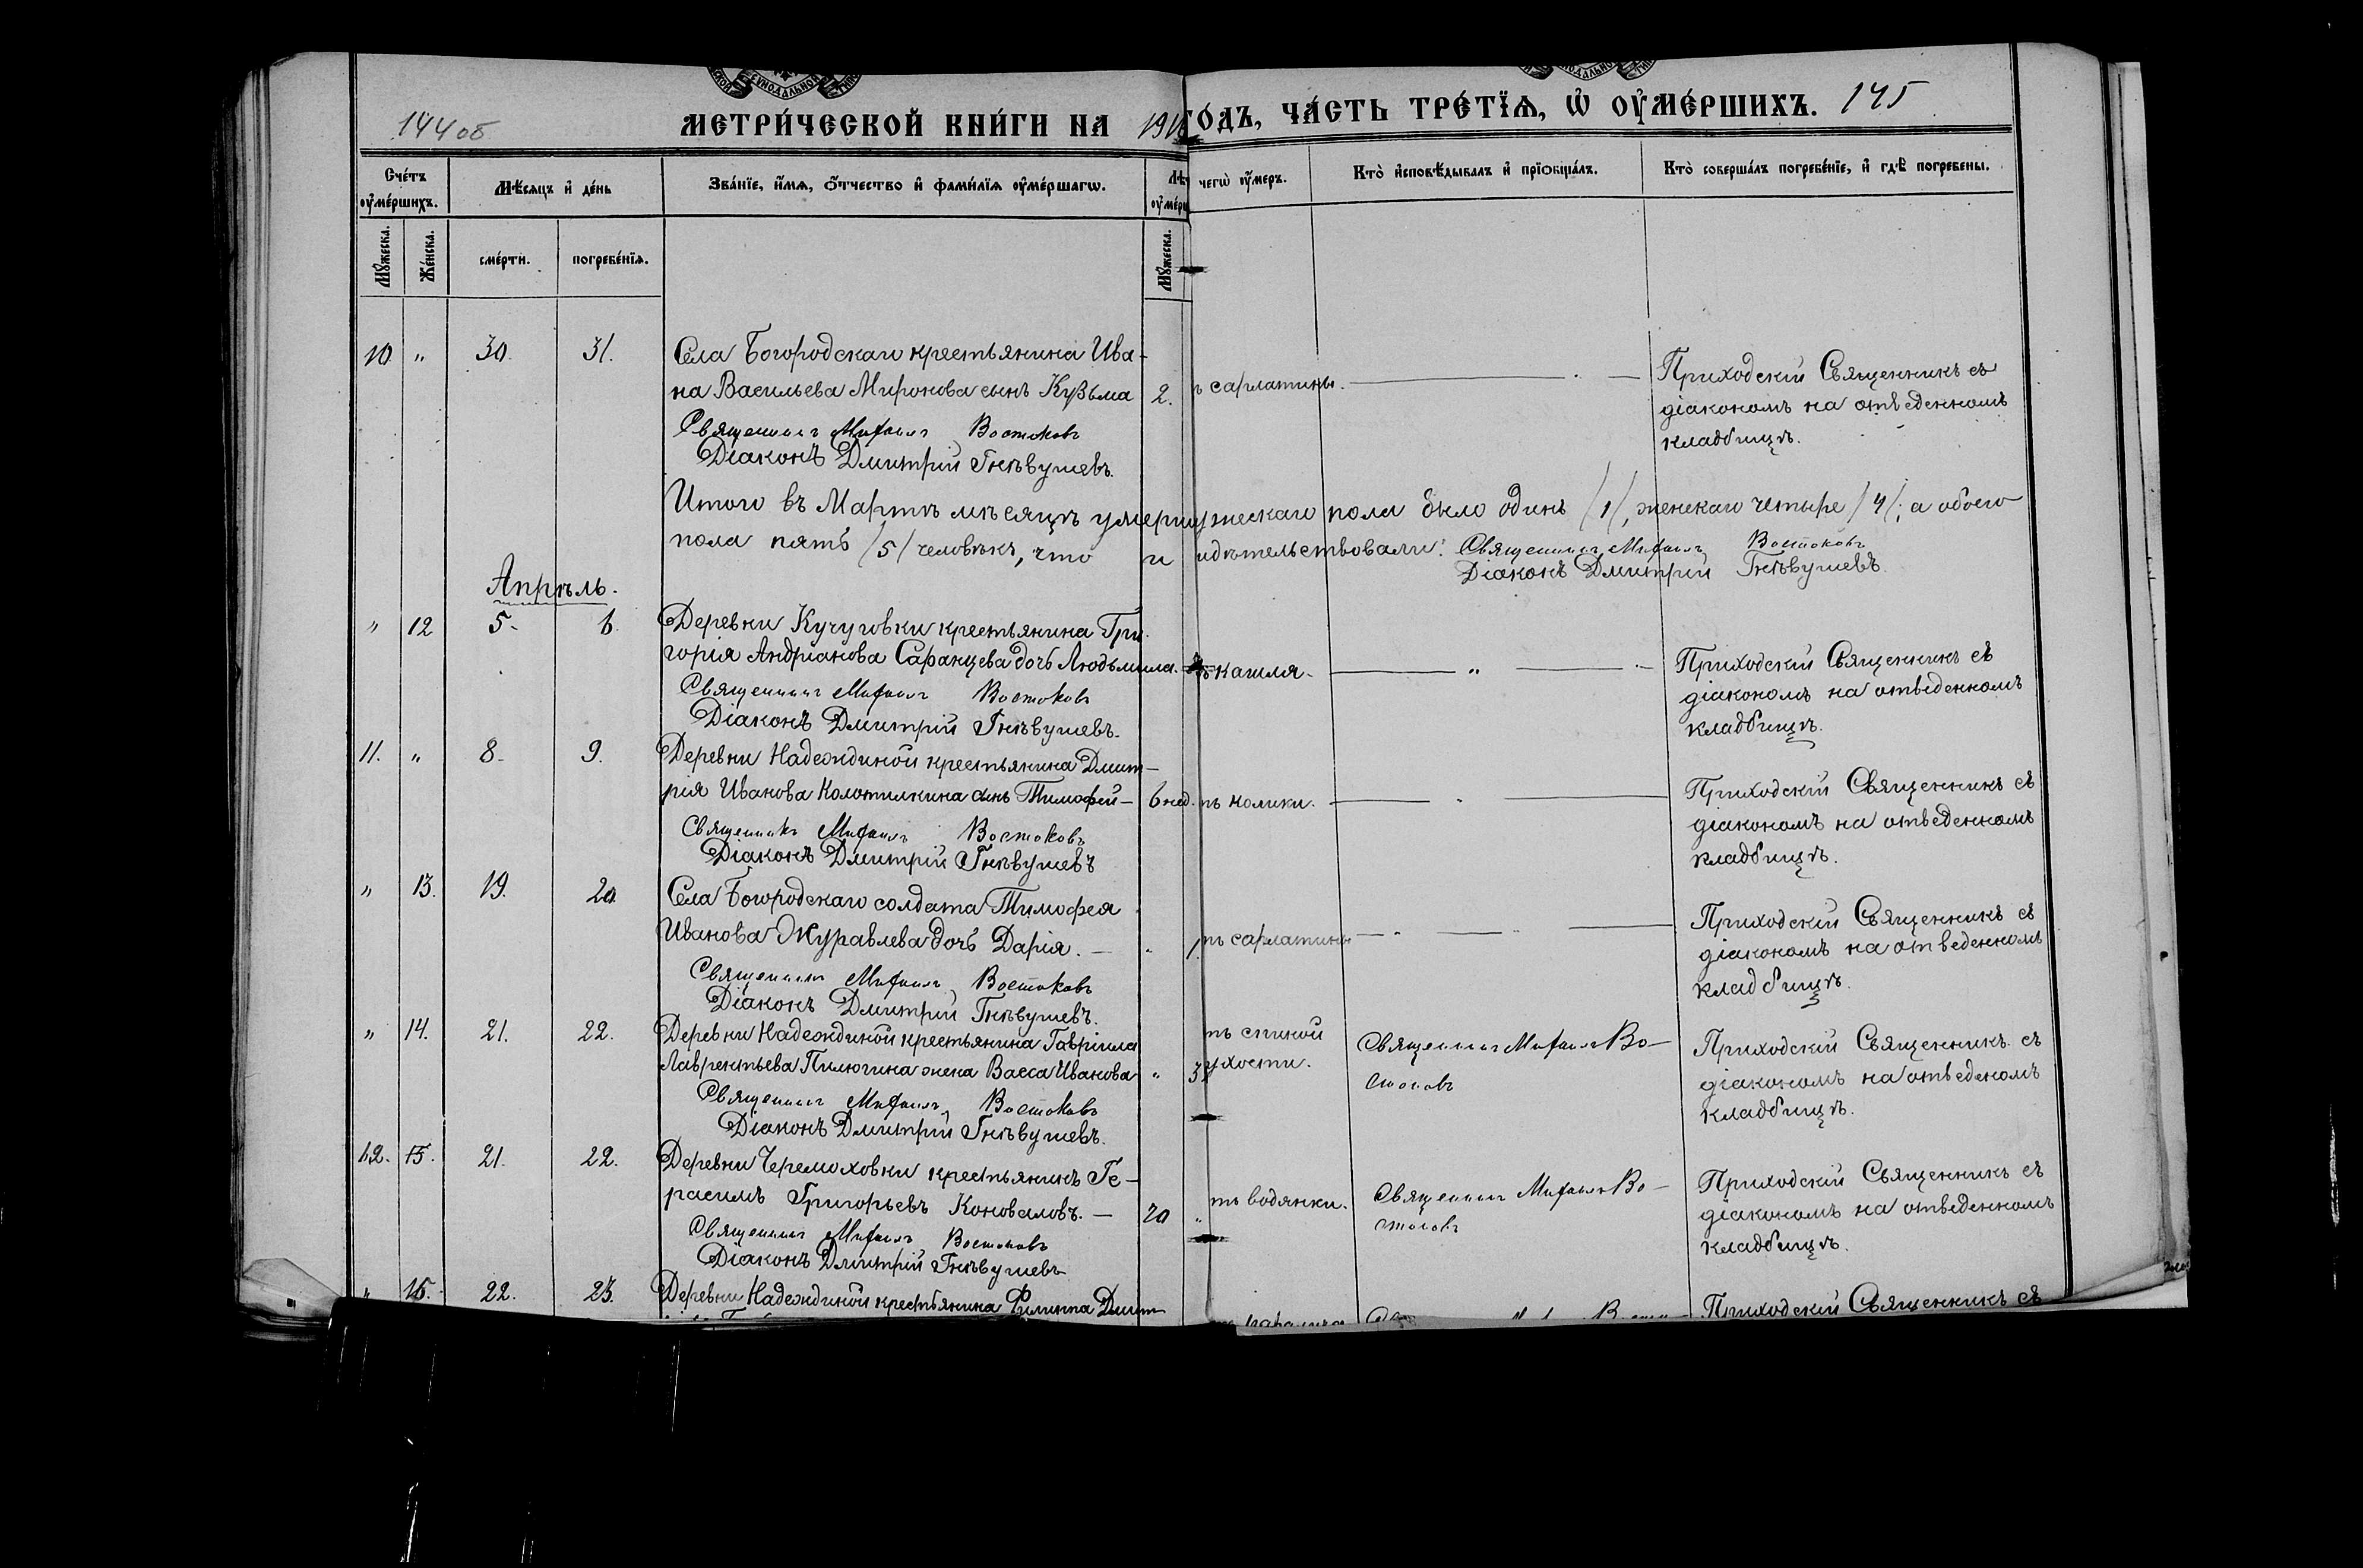 144 об
МЕТРИ́ЧЕСКОЙ КНИ́ГИ НА 191
ГО́ДЪ, ЧА́СТЬ ТРЕ́ТЇѦ, Ѡ҆ ОУ҆МЕ́РШИХЪ. 145
Сче́тъ оу҆ме́ршихъ.
Мѣ́сяцъ и҆ де́нь
Зва́нїе, и҆́мѧ, ѻ҆́тчество и҆ фами́лїѧ оу҆ме́ршагѡ.
чегѡ̀ оу҆́меръ.
Кто̀ и҆сповѣ́дывалъ и҆ прїѻбща́лъ.
Кто̀ соверша́лъ погребе́нїе, и҆ гдѣ̀ погребены.
Мꙋ́жеска.
Же́нска.
сме́рти.
погребе́нїѧ.
Мꙋ́жеска.
10 " 30. 31. Села Богородскаго крестьянина Ива-
на Васильева Миронова сынъ Кузьма 2.
Священникъ Михаилъ Востоковъ
Діаконъ Дмитрій Гнѣвушевъ.
ъ сарлатины.
Приходскій Священникъ съ
діакономъ на отведенномъ
кладбищѣ.
Итого въ Мартѣ мѣсяцѣ умер ужескаго пола было одинъ /1/, женскаго четыре /4/; а обоего
пола пять /5/ человѣкъ, что и идѣтельствовали: Священникъ Михаилъ Востоковъ
Діаконъ Дмитрій Гнѣвушевъ.
Апрѣль.
" 12 5. 6. Деревни Кучуговки крестьянина Гри-
горія Андріанова Саранцева дочь Людьмила.
Священникъ Михаилъ Востоковъ
Діаконъ Дмитрій Гнѣвушевъ.
ъ кашля. "
Приходскій Священникъ съ
діакономъ на отведенномъ
кладбищѣ.
11. " 8. 9. Деревни Надеждиной крестьянина Дмит-
рія Иванова Колотилкина сынъ Тимофей- 6 нед.
Священникъ Михаилъ Востоковъ
Діаконъ Дмитрій Гнѣвушевъ
тъ колики.
Приходскій Священникъ съ
діакономъ на отведенномъ
кладбищѣ.
" 13. 19. 20. Села Богородскаго солдата Тимофея
Иванова Журавлева дочь Дарія. - " 1.
Священникъ Михаилъ Востоковъ
Діаконъ Дмитрій Гнѣвушевъ.
тъ сарлатины
Приходскій Священникъ съ
діакономъ на отведенномъ
кладбищѣ.
" 14. 21. 22. Деревни Надеждиной крестьянина Гавріила
Лаврентьева Пилюгина жена Васса Иванова "
Священникъ Михаилъ Востоковъ
Діаконъ Дмитрій Гнѣвушевъ.
Священникъ Михаилъ Во-
стоковъ
Приходскій Священникъ съ
діакономъ на отведеномъ
кладбищѣ.
12. 15. 21. 22. Деревни Черемоховки крестьянинъ Ге-
расимъ Григорьевъ Коноваловъ. - 70 "
Священникъ Михаилъ Востоковъ
Діаконъ Дмитрій Гнѣвушевъ
тъ водянки.
Священникъ Михаилъ Во-
стоковъ
Приходскій Священникъ съ
діакономъ на отведенномъ
кладбищѣ.
" 22. 23. Деревни Надеждиной крестьянина Филиппа Дмит
Приходскій Священникъ съ